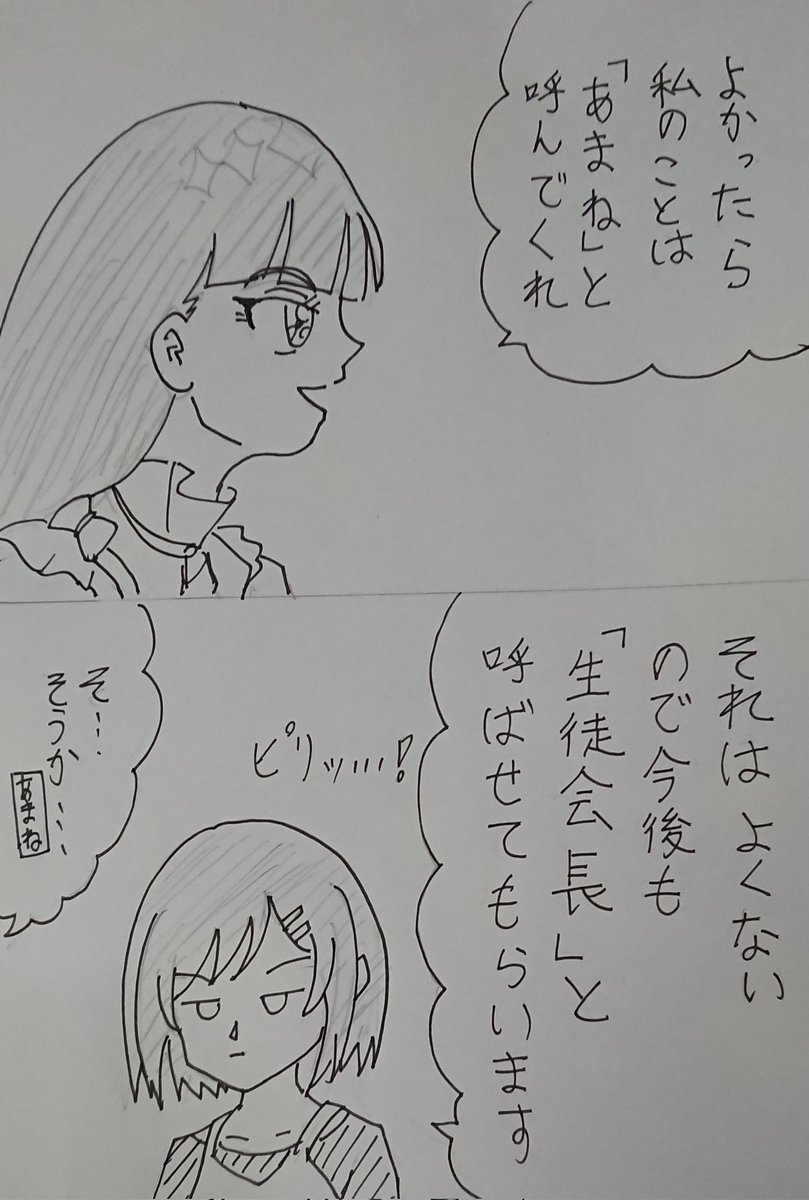 よかったら
私のことは
「あまね」と
呼んでくれ
それはよくない
ので今後も
「生徒会長」と
呼ばせてもらいます
ピリッ…!
そ…
そうか…
あまね